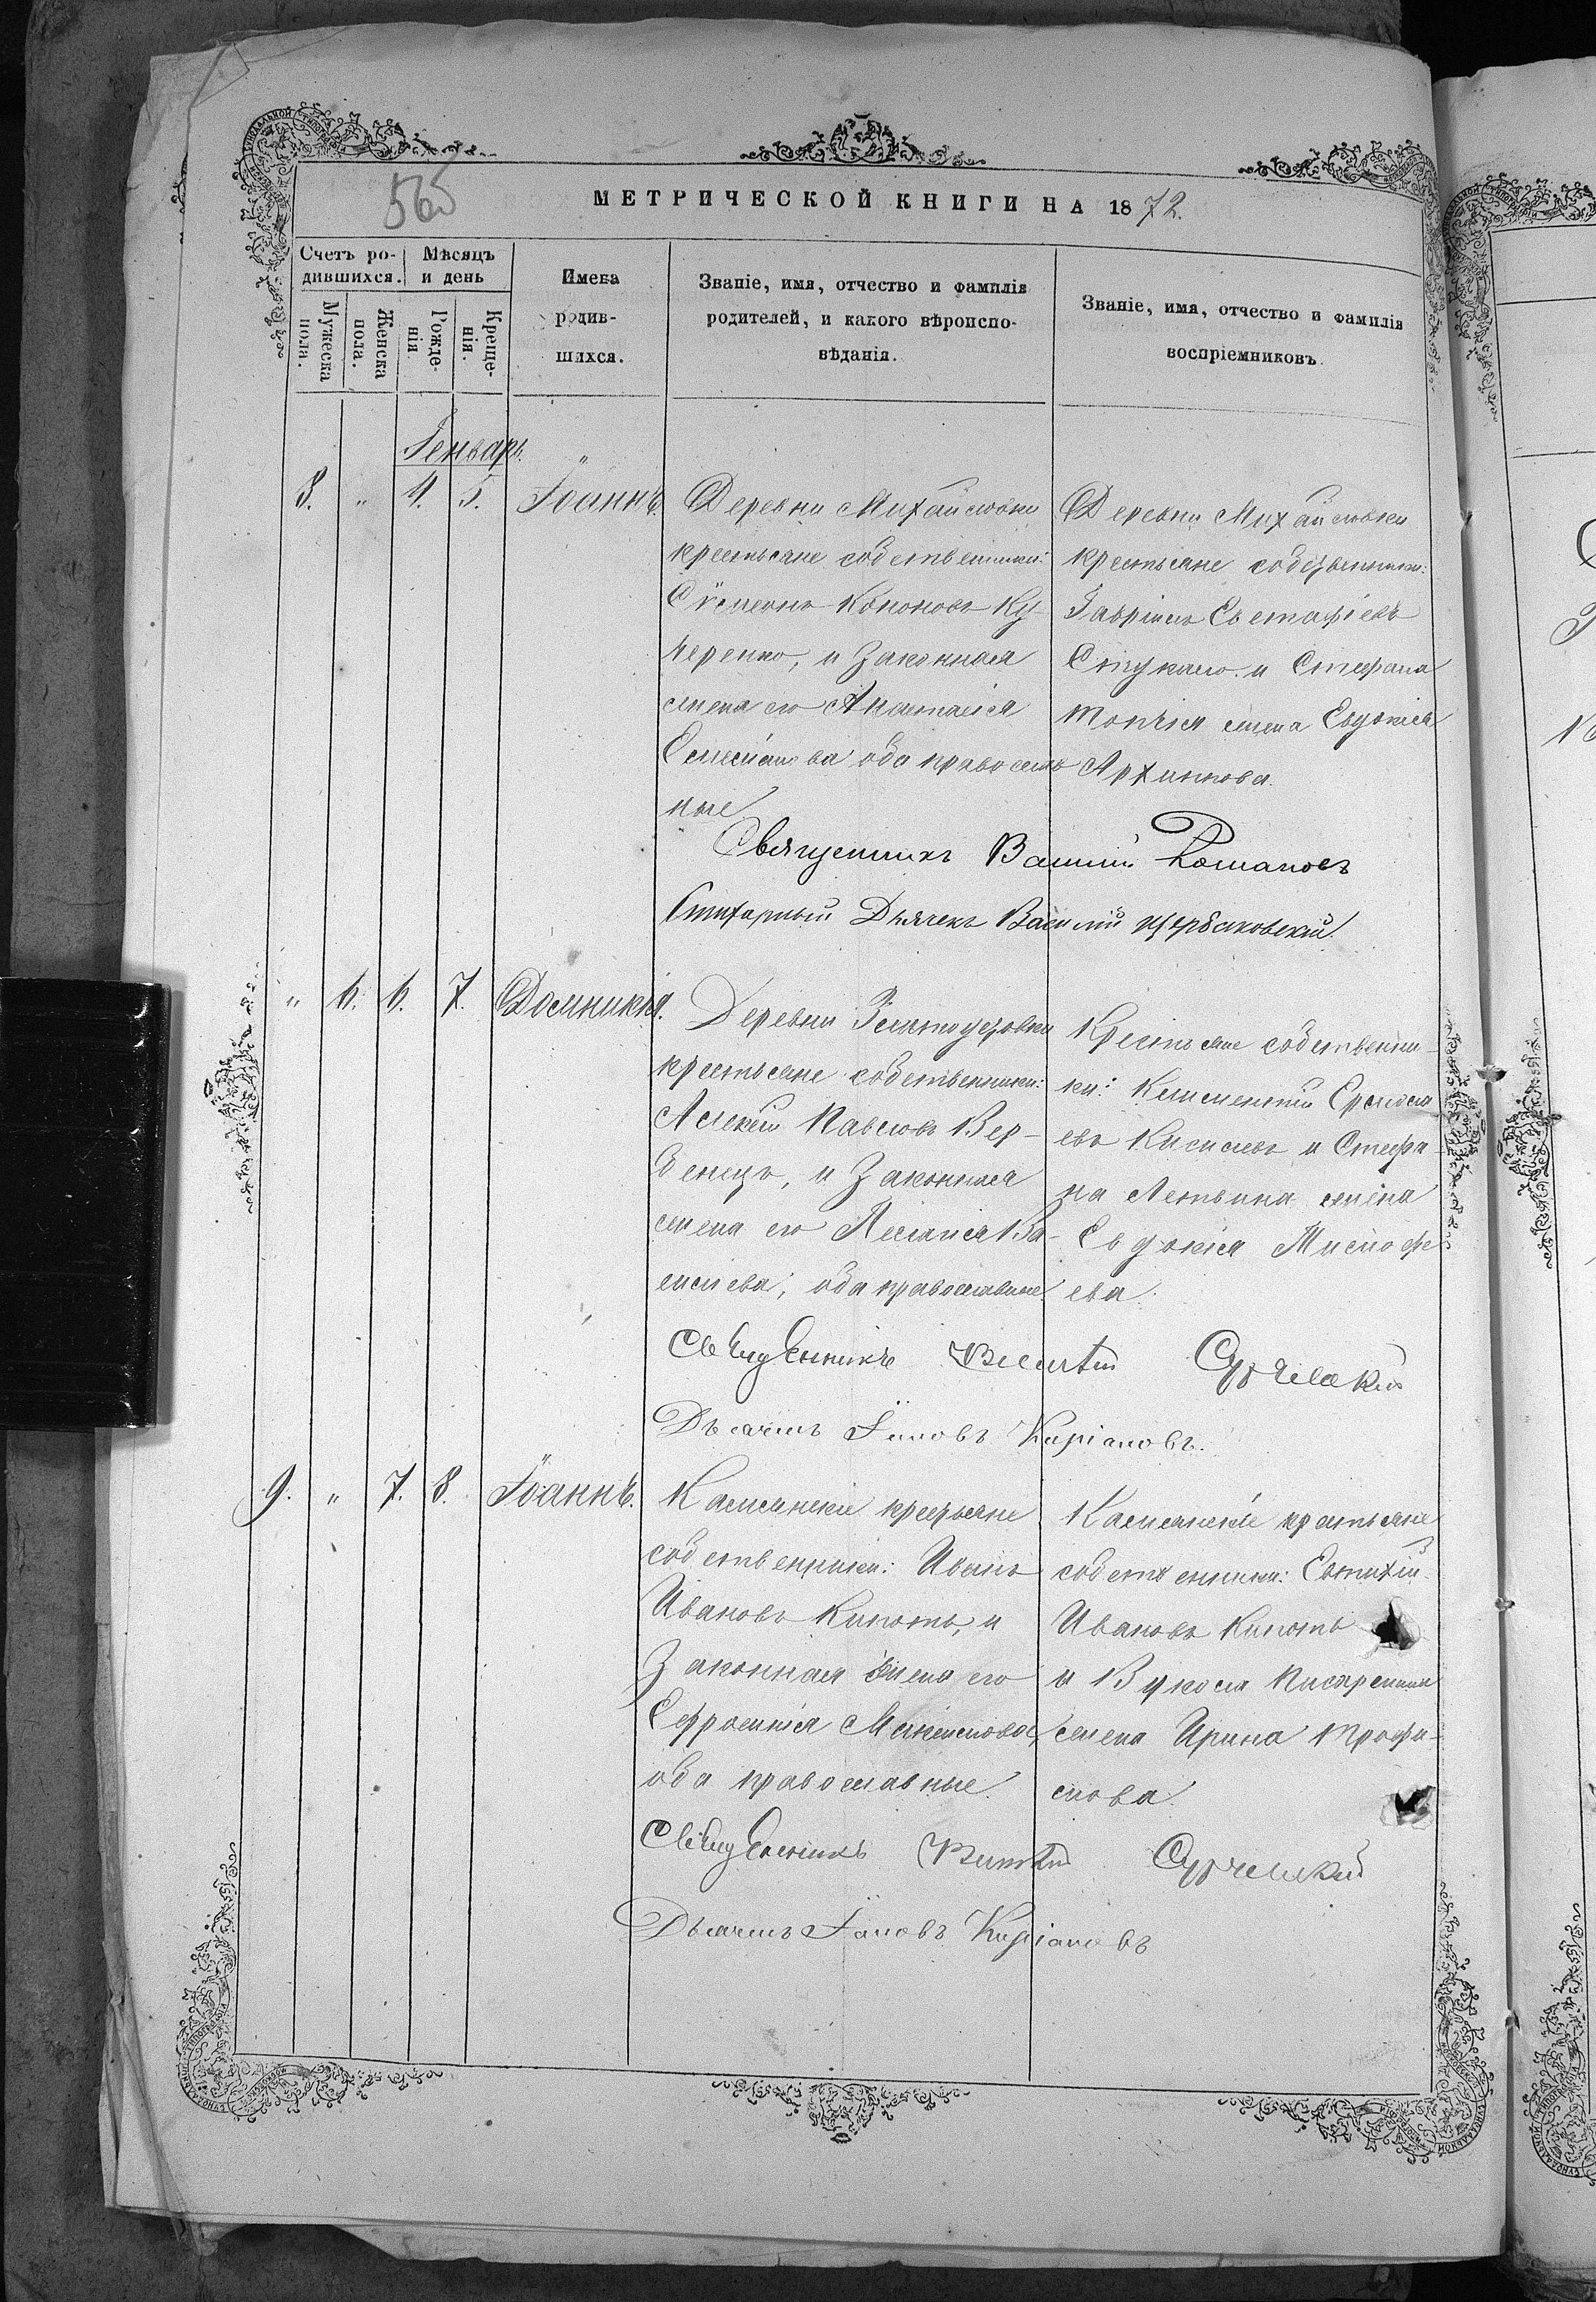 565
МЕТРИЧЕСКОЙ КНИГИ НА 1872.
Счетъ ро-
дившихся.
Мѣсяцъ
и день
Мужеска
пола.
Женска
пола.
Рожде-
нія.
Креще-
нія.
Имена
родив-
шихся.
Званіе, имя, отчество и фамилія
родителей, и какого вѣроиспо-
вѣданія.
Званіе, имя, отчество и фамилія
воспріемниковъ.
Генварь.
8. " 4. 5. Іоаннъ.
Деревни Михайловки
крестьяне собственники:
Сѵмеонъ Кононовъ Ку-
черенко, и законная
жена его Анастасія
оба православ
ные
Деревни Михайловки
крестьяне собственники:
Гавріилъ Евстафіевъ
и Стефана
жена Евдокія
Архипова.
Священникъ Романовъ
Стихарный Дьячекъ Василій Щербаковскій.
" 6. 6. 7. Домникія.
Деревни
крестьяне собственники:
Алексѣй Павловъ Вер-
бенецъ, и законная
жена его Ва-
сильева, оба православные.
Крестьяне собственни-
ки: Климентій Ермола
евъ Киселевъ и Стефа
на жена
Евдокія Тимофе
ева.
Священникъ
Дьячекъ Кипріановъ.
9. " 7. 8. Іоаннъ.
Каменскіе крестьяне
собственники: Иванъ
Ивановъ Кипоть, и
законная жена его
Евфросинія Максимова,
оба православные.
Каменскіе крестьяне
собственники: Евтихій
Ивановъ Кипоть
и Вукола
жена Ирина Трофи-
мова.
Священникъ
Дьячекъ Кипріановъ